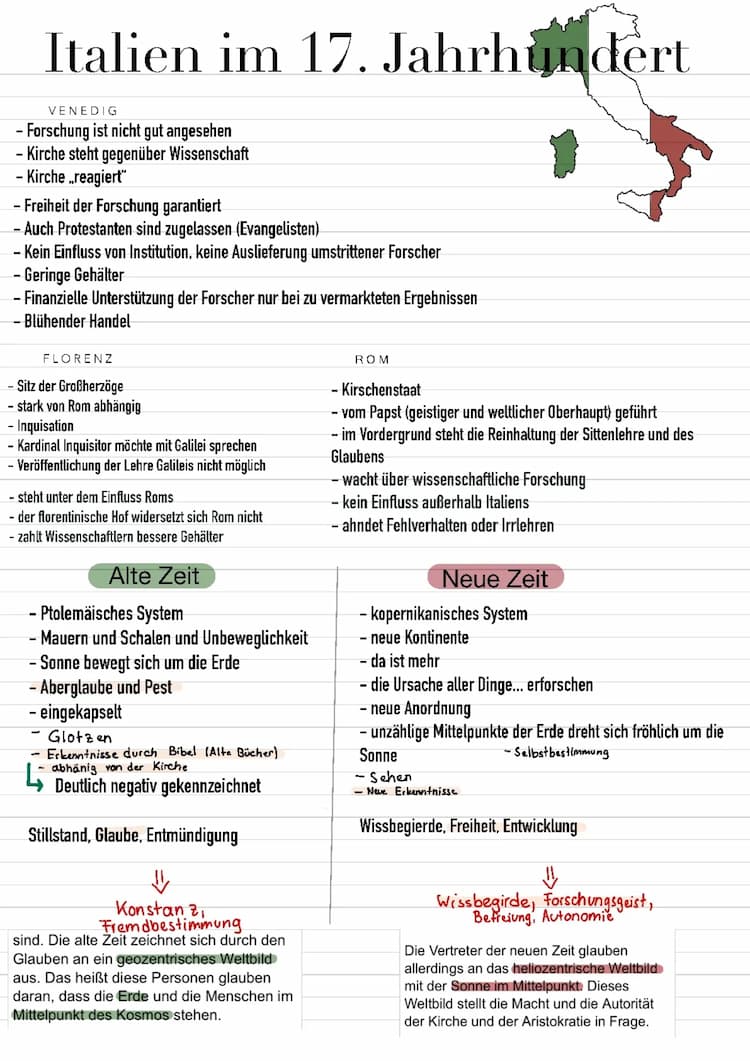 Italien im 17. Jahrhundert
VENEDIG
- Forschung ist nicht gut angesehen
- Kirche steht gegenüber Wissenschaft
- Kirche „reagiert“
- Freiheit der Forschung garantiert
- Auch Protestanten sind zugelassen (Evangelisten)
- Kein Einfluss von Institution, keine Auslieferung umstrittener Forscher
- Geringe Gehälter
- Finanzielle Unterstützung der Forscher nur bei zu vermarkteten Ergebnissen
- Blühender Handel
FLORENZ
- Sitz der Großherzöge
- stark von Rom abhängig
- Inquisation
- Kardinal Inquisitor möchte mit Galilei sprechen
- Veröffentlichung der Lehre Galileis nicht möglich
- steht unter dem Einfluss Roms
- der florentinische Hof widersetzt sich Rom nicht
- zahlt Wissenschaftlern bessere Gehälter
ROM
- Kirschenstaat
- vom Papst (geistiger und weltlicher Oberhaupt) geführt
- im Vordergrund steht die Reinhaltung der Sittenlehre und des
Glaubens
- wacht über wissenschaftliche Forschung
- kein Einfluss außerhalb Italiens
- ahndet Fehlverhalten oder Irrlehren
Alte Zeit
- Ptolemäisches System
- Mauern und Schalen und Unbeweglichkeit
- Sonne bewegt sich um die Erde
- Aberglaube und Pest
- eingekapselt
- Glotzen
- Erkenntnisse durch Bibel (Alte Bücher)
- abhänig von der Kirche
Deutlich negativ gekennzeichnet
Stillstand, Glaube, Entmündigung
Konstanz,
Fremdbestimmung
sind. Die alte Zeit zeichnet sich durch den
Glauben an ein geozentrisches Weltbild
aus. Das heißt diese Personen glauben
daran, dass die Erde und die Menschen im
Mittelpunkt des Kosmos stehen.
Neue Zeit
- kopernikanisches System
- neue Kontinente
- da ist mehr
- die Ursache aller Dinge... erforschen
- neue Anordnung
- unzählige Mittelpunkte der Erde dreht sich fröhlich um die
Sonne
- Selbstbestimmung
- Sehen
- Neue Erkenntnisse
Wissbegierde, Freiheit, Entwicklung
Wissbegirde, Forschungsgeist,
Befreiung, Autonomie
Die Vertreter der neuen Zeit glauben
allerdings an das heliozentrische Weltbild
mit der Sonne im Mittelpunkt. Dieses
Weltbild stellt die Macht und die Autorität
der Kirche und der Aristokratie in Frage.